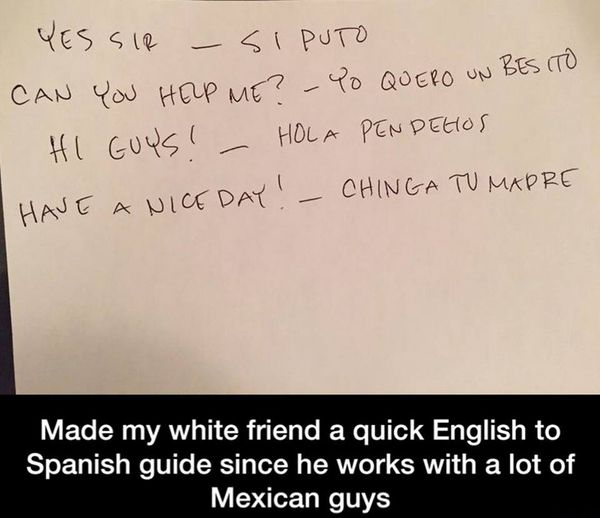 YES SIR — SI PUTO
CAN YOU HELP ME? – YO QUERO UN BESITO
HI GUYS! — HOLA PENDEHOS
HAVE A NICE DAY! — CHINGA TU MADRE
Made my white friend a quick English to
Spanish guide since he works with a lot of
Mexican guys